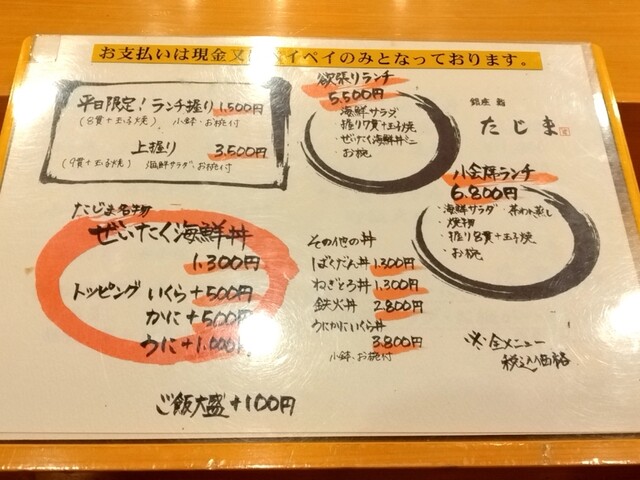 お支払いは現金又は ペイペイのみとなっております。
平日限定！ランチ握り 1,500円
(8貫+玉子焼) 小鉢・お椀付
上握り 3,500円
(9貫+玉子焼) 海鮮サラダ、お椀付
欲張りランチ
5,500円
・海鮮サラダ
・握り7貫+玉子焼
・ぜいたく海鮮丼ミニ
・お椀
銀座 鮨
たじま
八会席ランチ
6,800円
・海鮮サラダ ・茶わん蒸し
・焼物
・握り8貫+玉子焼
・お椀
たじま名物
ぜいたく海鮮丼
1,300円
トッピング いくら+500円
かに+500円
うに+1,000円
その他の丼
ばくだん丼 1,300円
ねぎとろ丼 1,300円
鉄火丼 2,800円
うにかにいくら丼
3,800円
小鉢、お椀付
※全メニュー
税込価格
ご飯大盛+100円